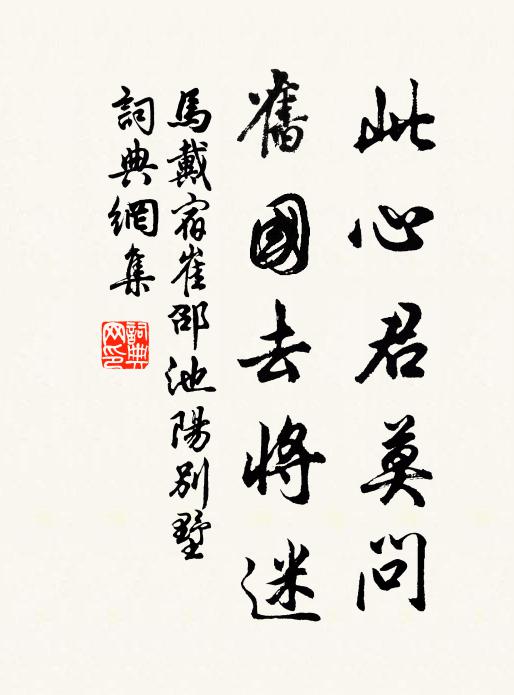 此心君莫問
舊國去將迷
馬戴宿崔邵池陽別墅
詞典網集
詞典网印